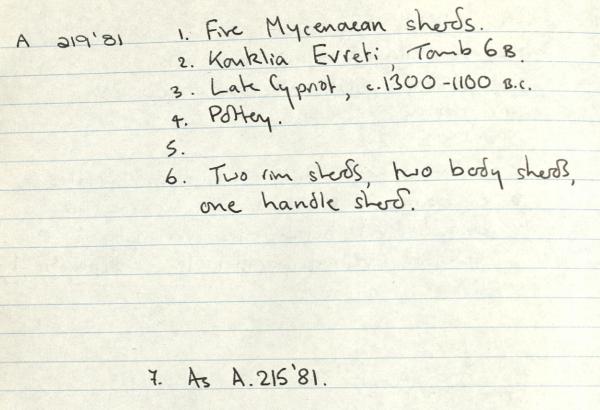 A 219'81 1. Five Mycenaean sherds.
2. Kouklia Evreti, Tomb 6B.
3. Late Cypriot, c.1300-1100 B.C.
4. Pottery.
5.
6. Two rim sherds, two body sherds,
one handle sherd.
7. As A.215'81.